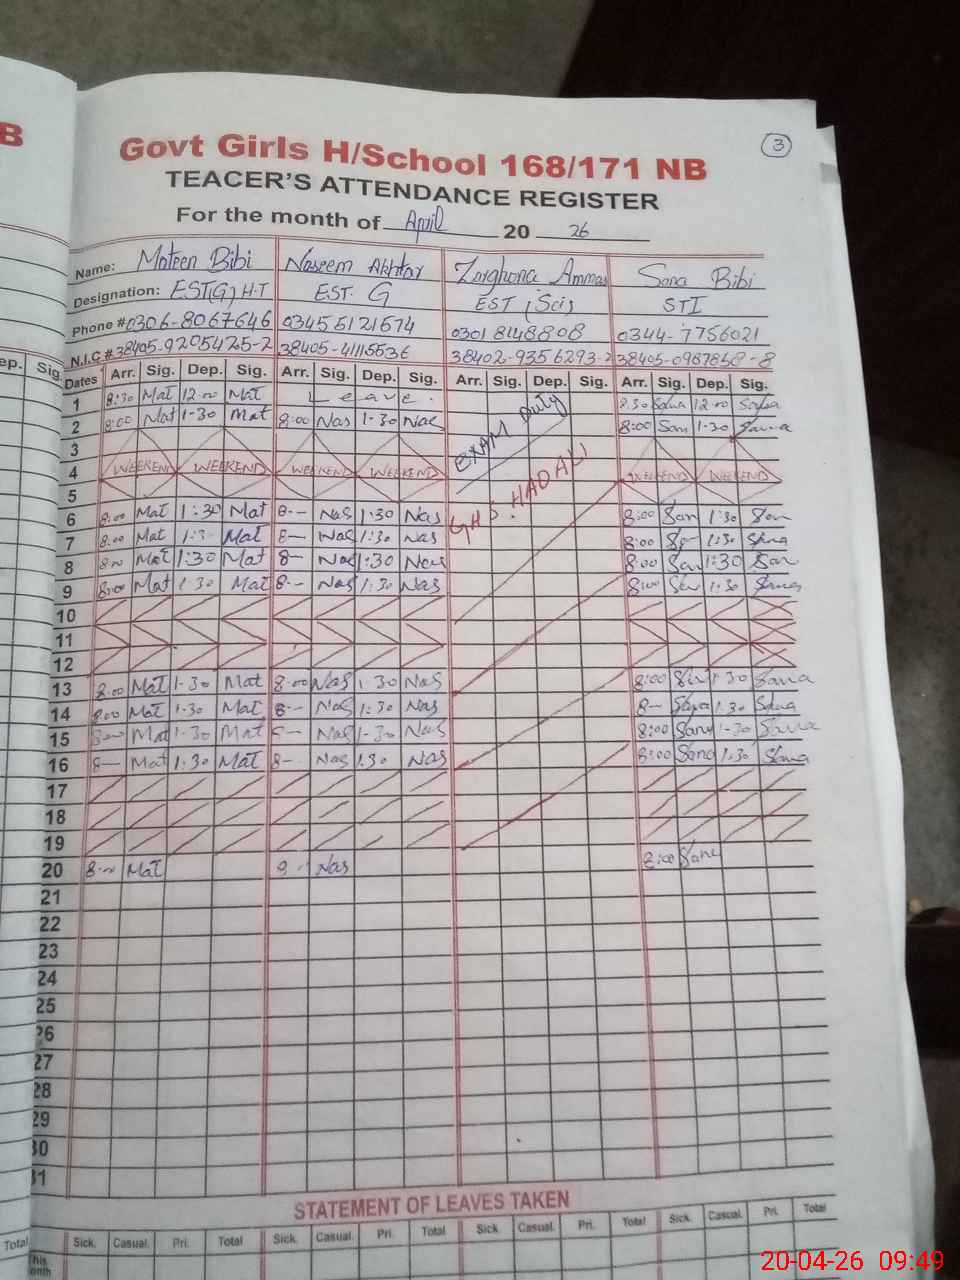 B
3
Govt Girls H/School 168/171 NB
TEACER'S ATTENDANCE REGISTER
For the month of April 20 26
Name: Moteen Bibi Naseem Akhtar Zarghona Ammas Sana Bibi
Designation: EST(G) H.T EST. G EST (Sci) STI
Phone # 0306-8067646 03455121574 0301 8148808 0344-7756021
N.I.C # 38405-9205425-2 38405-4115536 38402-9356293-2 38405-0967858-8
ep. Sig.
Dates Arr. Sig. Dep. Sig. Arr. Sig. Dep. Sig. Arr. Sig. Dep. Sig. Arr. Sig. Dep. Sig.
1 8:30 Mat 12-00 Mat Leave. 8.30 Sana 12-00 Sana
2 8:00 Mat 1-30 Mat 8:00 Nas 1-30 Nas EXAM Duty 8:00 San 1-30 Sana
3
4 WEEKEND WEEKEND WEEKEND WEEKEND WEEKEND WEEKEND
5
GHS. HADALI
6 8:00 Mat 1:30 Mat 8-- Nas 1:30 Nas 8:00 San 1:30 San
7 8:00 Mat 1:30 Mat 8- Nas 1:30 Nas 8:00 1:30 Sana
8 8:00 Mat 1:30 Mat 8- Nas 1:30 Nas 8:00 San 1:30 San
9 8:00 Mat 1:30 Mat 8-- Nas 1:30 Nas 8:00 1:30 Sana
10
11
12
13 8:00 Mat 1-30 Mat 8-00 Nas 1-30 Nas 8:00 1-30 Sana
14 8:00 Mat 1-30 Mat 8- Nas 1:30 Nas 8- Sana 1:30 Sana
15 8:00 Mat 1-30 Mat 8- Nas 1-30 Nas 8:00 Sana 1-30 Sana
16 8- Mat 1:30 Mat 8-- Nas 1:30 Nas 8:00 Sana 1:30 Sana
17
18
19
20 8-00 Mat 8 Nas 8:00 Sana
21
22
23
24
25
26
27
28
29
30
31
STATEMENT OF LEAVES TAKEN
Total Sick. Casual. Pri. Total Sick. Casual. Pri. Total Sick. Casual. Pri. Total Sick. Casual. Pri. Total
This
onth
20-04-26 09:49